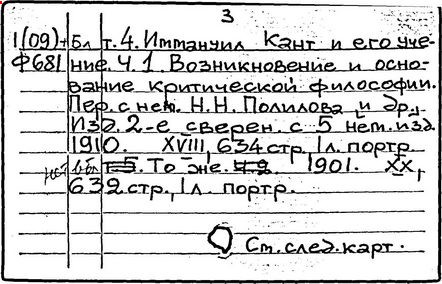 3
1(09)+ Бл т.4. Иммануил Кант и его уче-
Ф681 ние. Ч.1. Возникновение и осно-
вание критической философии.
Пер. с нем. Н.Н. Полилова и др.,
Изд. 2-е сверен. с 5 нем. изд.
1910. XVIII, 634 стр., 1л. портр.
т.5. То же. ч.2. 1901. XX,
632 стр., 1л. портр.
См. след. карт.